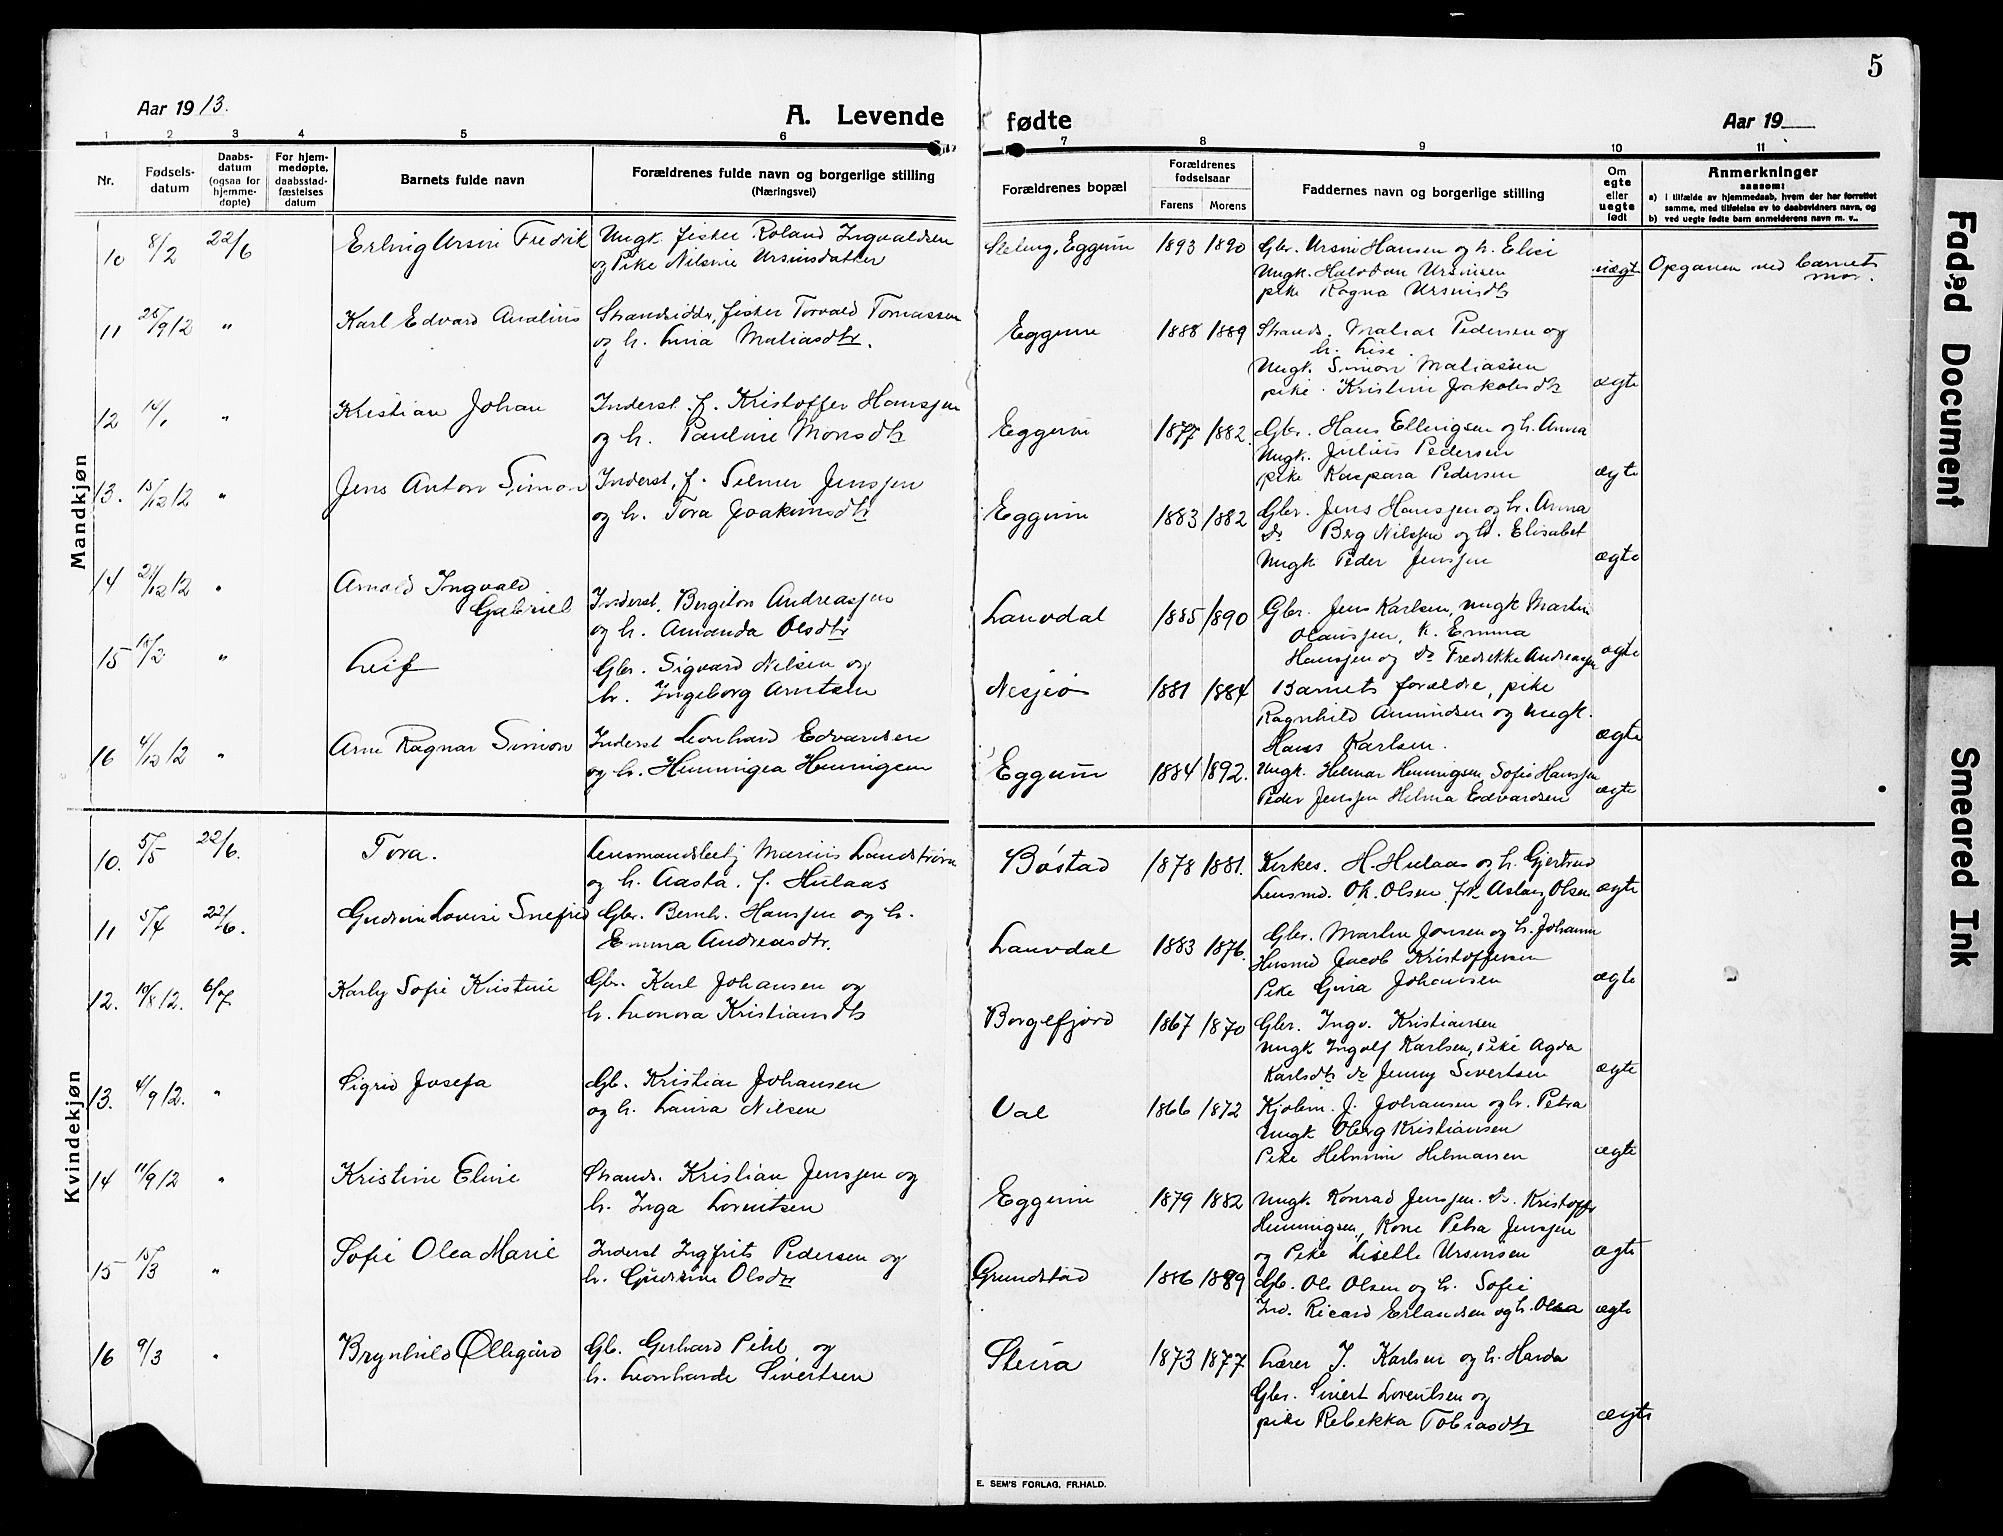 5
Aar 1913.
A. Levende fødte
Aar 19
1 2 3 4 5 6 7 8 9 10 11
Nr.
Fødsels-
datum
Daabs-
datum
(ogsaa for
hjemme-
døpte)
For hjem-
medøpte,
daabsstad-
fæstelses
datum
Barnets fulde navn
Forældrenes fulde navn og borgerlige stilling
(Næringsvei)
Forældrenes bopæl
Forældrenes
fødselsaar
Farens Morens
Faddernes navn og borgerlige stilling
Om
egte
eller
uegte
født
Anmerkninger
saasom:
a) i tilfælde av hjemmedaab, hvem der har forrettet
samme, med tilføielse av to daabsvidners navn, og
b) ved uegte fødte barn anmelderens navn m. v..
Mandkjøn
10 8/2 22/6 Erling Ursin Fredrik Ungk. fisker Roland Ingvaldsen
og Pike Nilsine Ursinsdatter
Eggum 1893 1890 Gbr. Ursin Hansen og h. Elise
Ungk. Halvdan Ursinsen
pike Ragna Ursinsdtr
uægte Opgaven ved barnets
mor.
11 25/9 12 " Karl Edvard Analius Strandsidder, fisker Torvald Tomassen
og h. Lina Matiasdtr.
Eggum 1888 1889 Strands. Matias Pedersen og
h. Lise.
Ungk. Simon Matiassen
pike. Kristine Jakobsdtr
ægte
12 14/1 " Kristian Johan Inderst. f. Kristoffer Hansjen
og h. Pauline Monsdtr
Eggum 1877 1882. Gbr. Hans Ellingsen og h. Anna
Ungk. Julius Pedersen
pike Kaspara Pedersen
ægte
13. 15/12 12 " Jens Anton Simon Inderst, f. Selmer Jensjen
og h. Tora Joakimsdtr
Eggum 1883 1882 Gbr. Jens Hansjen og h. Anna
do Berg Nilsjen og h. Elisabet
Ungk Peder Jensjen
ægte
14 21/12 12 " Arnold Ingvald
Gabriel
Inderst. Bergiton Andreasjen
og h. Amanda Olsdtr
Lauvdal 1885 1890 Gbr. Jens Karlsen, ungk Martin
Olausjen, K. Emma
Hansjen og do Fredrikke Andreasjen
ægte
15 15/2 " Leif Gbr. Sigvard Nilsen og
h. Ingeborg Arntsen
Nesjeø 1881 1884 Barnets forældre, pike
Ragnhild Amundsen og ungk.
Hans Karlsen.
ægte
16 4/12 12 " Arne Ragnar Simon Inderst Leonhard Edvardsen
og h. Henningea Henningsen
Eggum 1884 1892. Ungk. Helmar Henningsen, Sofie Hansjen
Peder Jensjen Helma Edvardsen
ægte
Kvindekjøn
10. 5/5 22/6. Tora. Lensmandsbetj Marius Landstrøm
og h. Aasta. f. Hulaas
Bøstad 1878 1881. Kirkes. H. Hulaas og h. Gjertrud
Lensmd. Ok. Olsen frk Aslaug Olsen
ægte
11 5/4 22/6. Gudrun Lovise Snefrid Gbr. Bernh. Hansjen og h.
Emma Andreasdtr.
Lauvdal 1883 1876. Gbr. Martin Jonsen og h. Johanna
Husmd Jacob Kristoffersen
Pike Gina Johansen
ægte
12. 10/8 12. 6/7 Karly Sofie Kristine Gbr. Karl Johansen og
h. Leonora Kristiansdtr
Borgefjord 1867 1870 Gbr. Ingv. Kristiansen
Ungk Ingolf Karlsen, pike Agda
Karlsdtr do Jenny Sivertsen
ægte
13. 4/9 12. " Sigrid Josefa Gb. Kristian Johansen
og h. Laura Nilsen
Val 1866 1872 Kjøbm. J. Johansen og h. Petra
Ungk Oberg Kristiansen
Pike Helmine Helmersen
ægte
14 11/9 12 " Kristine Eline Strands. Kristian Jensjen og
h. Inga Lorentsen
Eggum 1879 1882 Ungk Konrad Jensjen. do. Kristoffer
Henningsen, Kone Petra Jensjen
og Pike Liselle Ursinsen
ægte
15 15/3 " Sofie Olea Marie Inderst Ingfrits Pedersen og
h. Gudrun Olsdtr
Grundstad 1886 1889 Gb. Ole Olsen og h. Sofie
Ind. Ricard Erlandsen og h. Olea
ægte
16 9/3 " Brynhild Ollegård Gb. Gerhard Pihl og
h. Leonharde Sivertsen
Steira 1873 1877 Lærer J. Karlsen og h. Harda
Gbr. Sivert Lorentsen og
pike Rebekka Tobiasdtr
ægte
E. SEM'S FORLAG, FR.HALD.
Faded Document
Smeared Ink